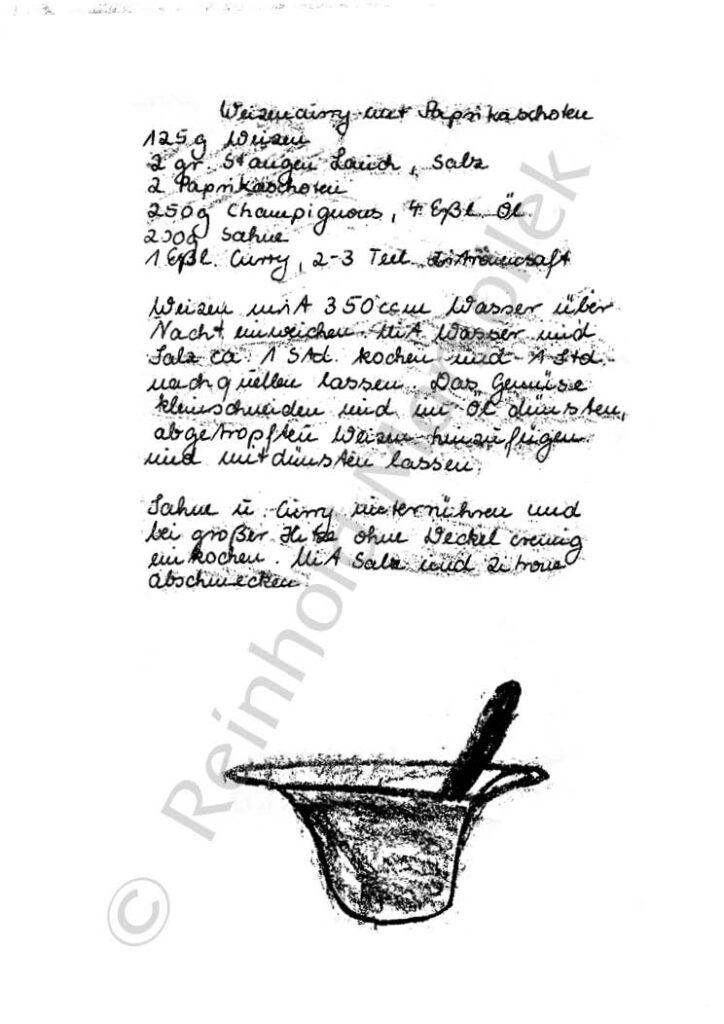 Weizencurry mit Paprikaschoten
125g Weizen
2 gr. Stangen Lauch, Salz
2 Paprikaschoten
250g Champignons, 4 Eßl. Öl.
200g Sahne
1 Eßl. Curry, 2-3 Teel. Zitronensaft
Weizen mit 350ccm Wasser über
Nacht einweichen. Mit Wasser und
Salz ca. 1 Std. kochen und 1 Std.
nachquellen lassen. Das Gemüse
kleinschneiden und in Öl dünsten,
abgetropften Weizen hinzufügen
und mitdünsten lassen.
Sahne u. Curry unterrühren und
bei großer Hitze ohne Deckel cremig
einkochen. Mit Salz und Zitrone
abschmecken.
© Reinhold